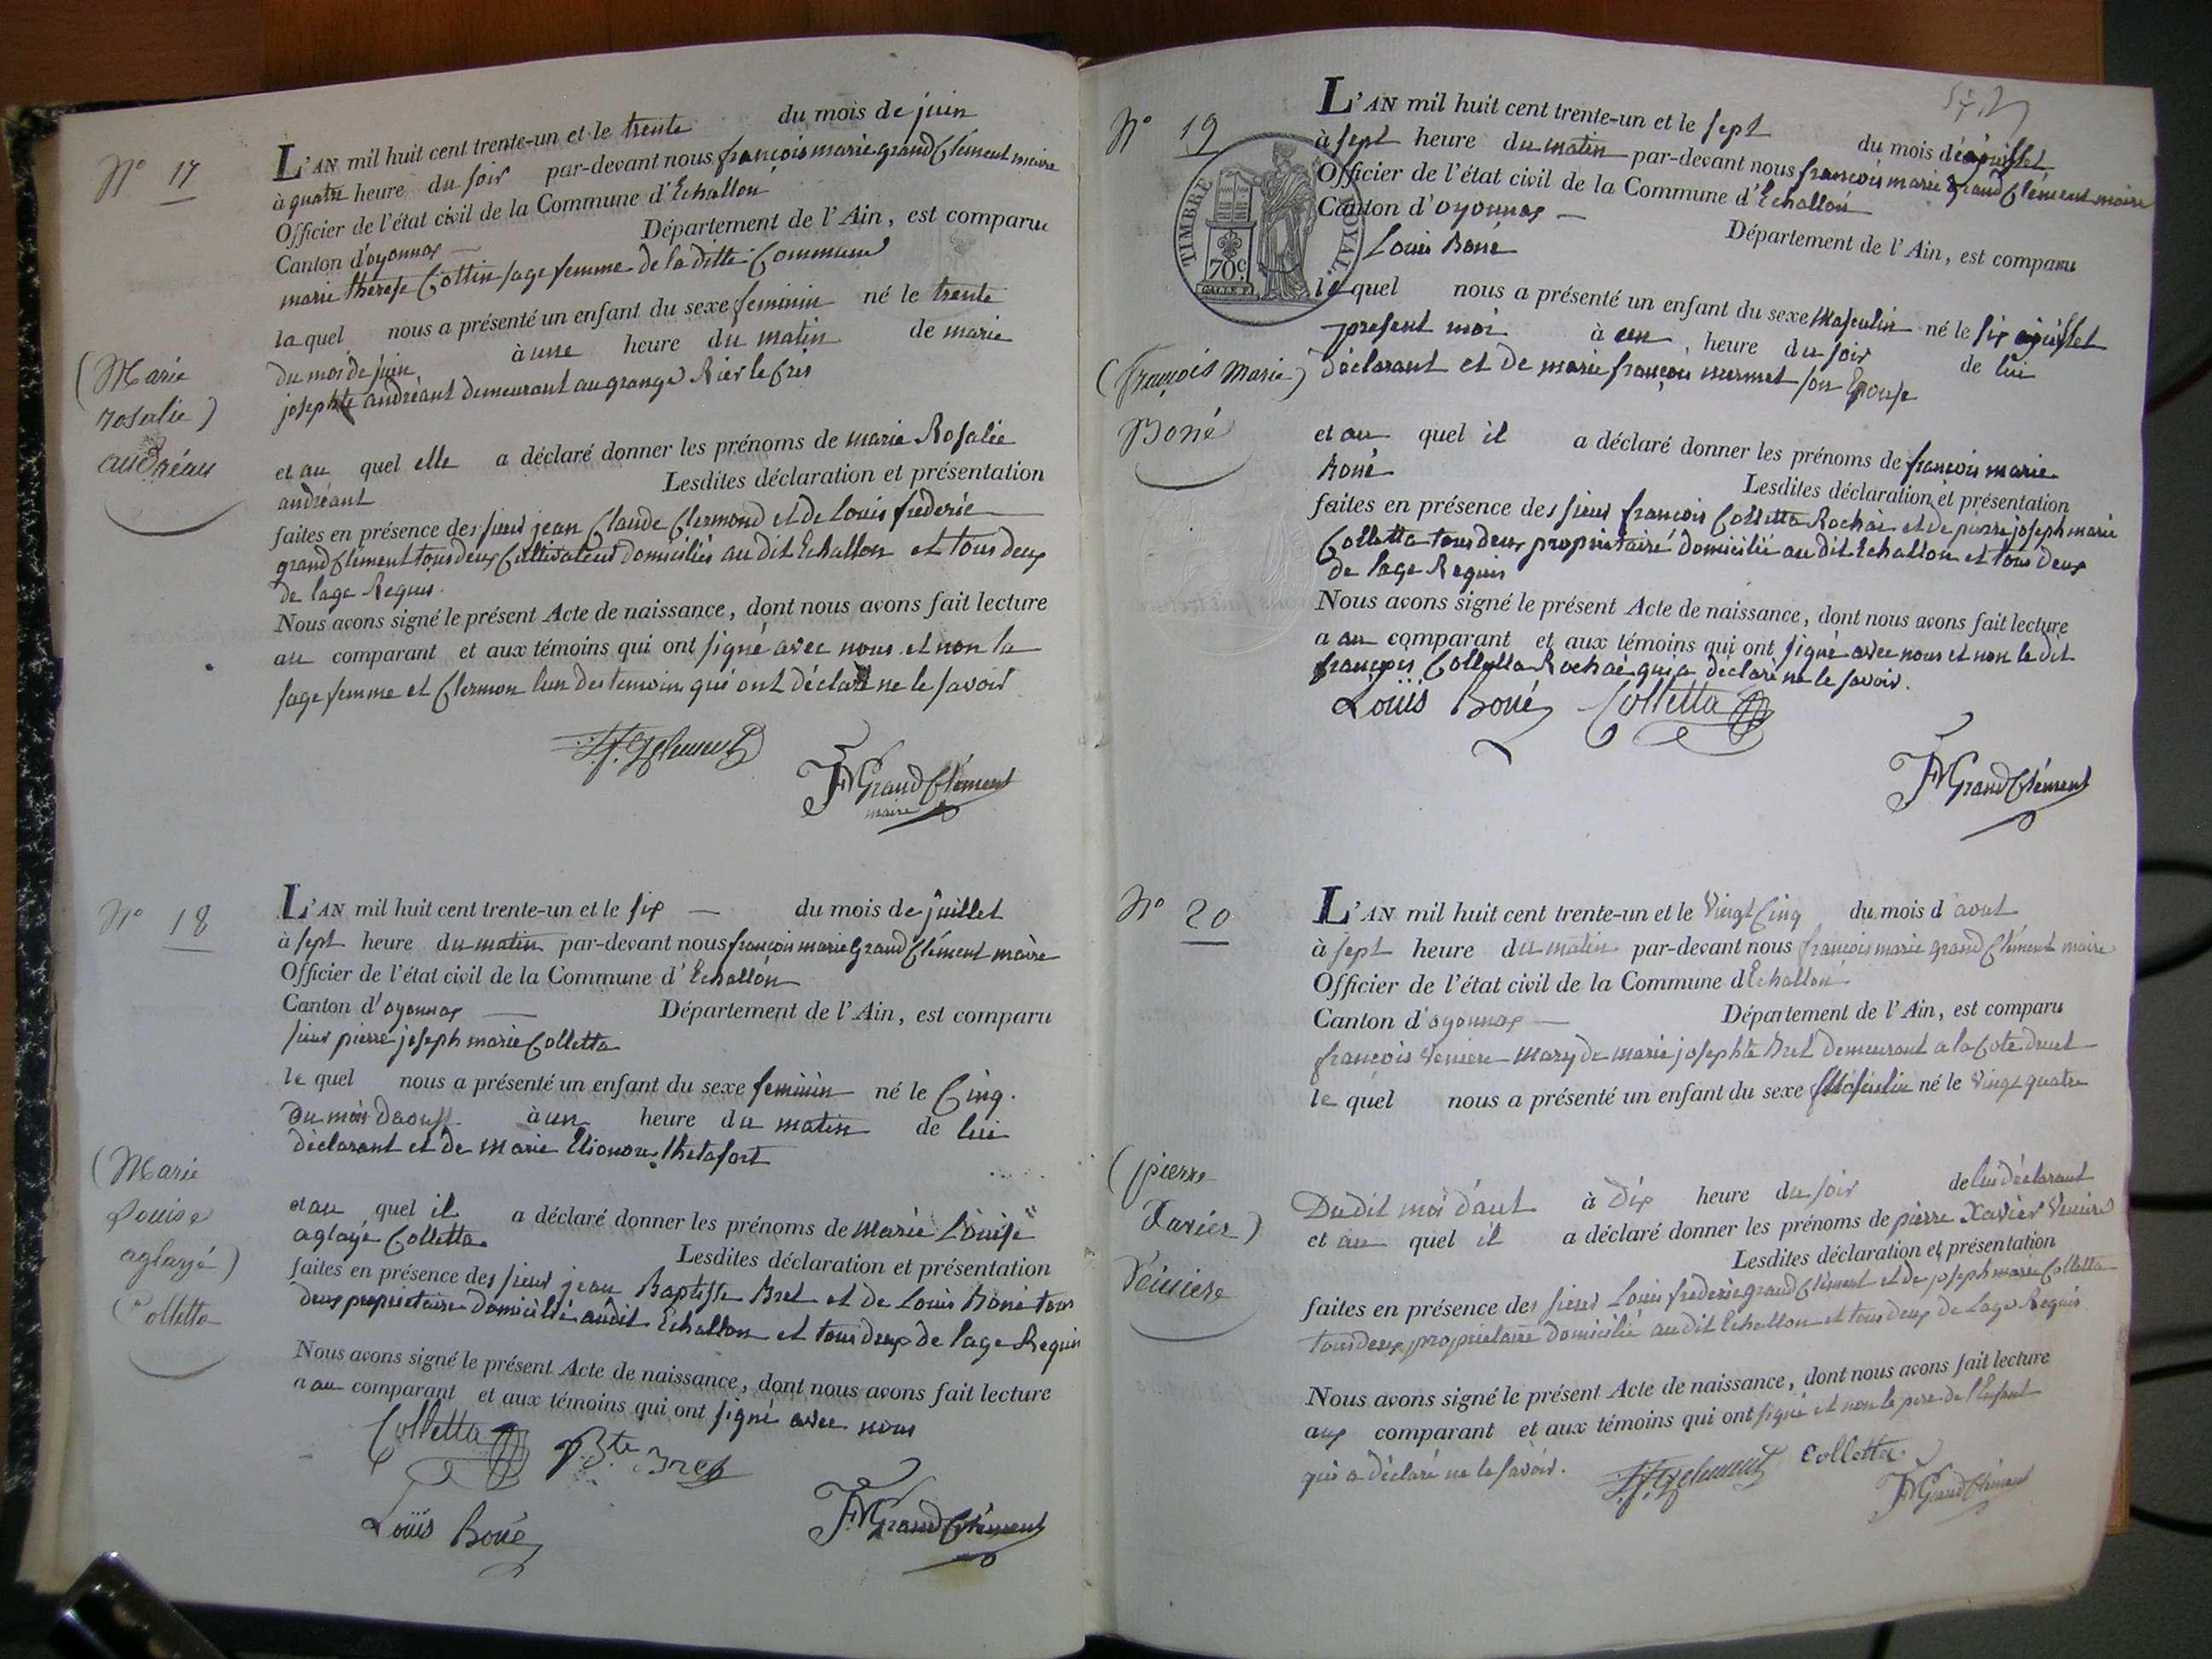 N° 17
L'AN mil huit cent trente-un et le trente du mois de juin
à quatre heure du soir par-devant nous françois marie grand Clément maire
Officier de l'état civil de la Commune d'Echallon
Canton d'oyonnax — Département de l'Ain, est comparu
marie therese Cottin sage femme de la ditte Commune
la quel nous a présenté un enfant du sexe feminin né le trente
du mois de juin à une heure du matin de marie
josephte andréant demeurant au grange
(Marie
rosalie)
andréau
et au quel elle a déclaré donner les prénoms de marie Rosalie
andréant Lesdites déclaration et présentation
faites en présence des sieur jean Claude Clermond et de Louis frederic
grand Clement tous deux Cultivateur domiciliés au dit Echallon et tous deux
de lage Requis.
Nous avons signé le présent Acte de naissance, dont nous avons fait lecture
au comparant et aux témoins qui ont signé avec nous et non la
sage femme et Clermon lun des temoins qui ont déclaré ne le savoir
FMGrandClément
maire
N° 18
L'AN mil huit cent trente-un et le six — du mois de juillet
à sept heure du matin par-devant nous françois marie Grand Clément maire
Officier de l'état civil de la Commune d'Echallon
Canton d'oyonnax — Département de l'Ain, est comparu
sieur pierre joseph marie Colletta
le quel nous a présenté un enfant du sexe feminin né le Cinq.
du mois daoust à un heure du matin de lui
déclarant et de marie
(Marie
Louise
aglayé)
Colletta
et au quel il a déclaré donner les prénoms de marie Louise
aglayé Colletta Lesdites déclaration et présentation
faites en présence des sieur jean Baptiste Bret et de Louis Boné tous
deux proprietaire domicilié audit Echallon et tous deux de lage Requis
Nous avons signé le présent Acte de naissance, dont nous avons fait lecture
a au comparant et aux témoins qui ont signé avec nous
Colletta Bte Bret
Louis Boné
FMGrandClément
N° 19
L'AN mil huit cent trente-un et le sept du mois de juillet
à sept heure du matin par-devant nous françois marie grand Clément maire
Officier de l'état civil de la Commune d'Echallon
Canton d'oyonnax — Département de l'Ain, est comparu
Louis Boné
TIMBRE ROYAL
70c
le quel nous a présenté un enfant du sexe Masculin né le six juillet
present moi à un heure du soir de lui
déclarant et de marie françoi mermet son Epouse
(françois marie)
Boné
et au quel il a déclaré donner les prénoms de françois marie
Boné Lesdites déclaration et présentation
faites en présence des sieur françois Colletta Rochai et de pierre joseph marie
Colletta tous deux proprietairé domicilié au dit Echallon et tous deux
de lage Requis
Nous avons signé le présent Acte de naissance, dont nous avons fait lecture
a au comparant et aux témoins qui ont signé avec nous et non le dit
françois Colletta Rochai qui a déclaré ne le savoir.
Louis Boné Colletta
FMGrandClément
N° 20
L'AN mil huit cent trente-un et le Vingt Cinq du mois d'aout
à sept heure du matin par-devant nous françois marie grand Clément maire
Officier de l'état civil de la Commune d'Echallon
Canton d'oyonnax — Département de l'Ain, est comparu
françois Veniere mary de marie josephte Bret demeurant a la Cote
le quel nous a présenté un enfant du sexe Masculin né le Vingt quatre
(pierre
Xavier)
Veniere
Du dit moi daut à Dix heure du soir de lui déclarant
et au quel il a déclaré donner les prénoms de pierre Xavier Veniere
Lesdites déclaration et présentation
faites en présence des sieur Louis frederic grand Clément et de joseph marie Colletta
tous deux proprietaire domicilié au dit Echallon et tous deux de Lage Requis
Nous avons signé le présent Acte de naissance, dont nous avons fait lecture
aux comparant et aux témoins qui ont signé et non le pere de l'Enfant
qui a déclaré ne le savoir.
Colletta
FMGrandClément